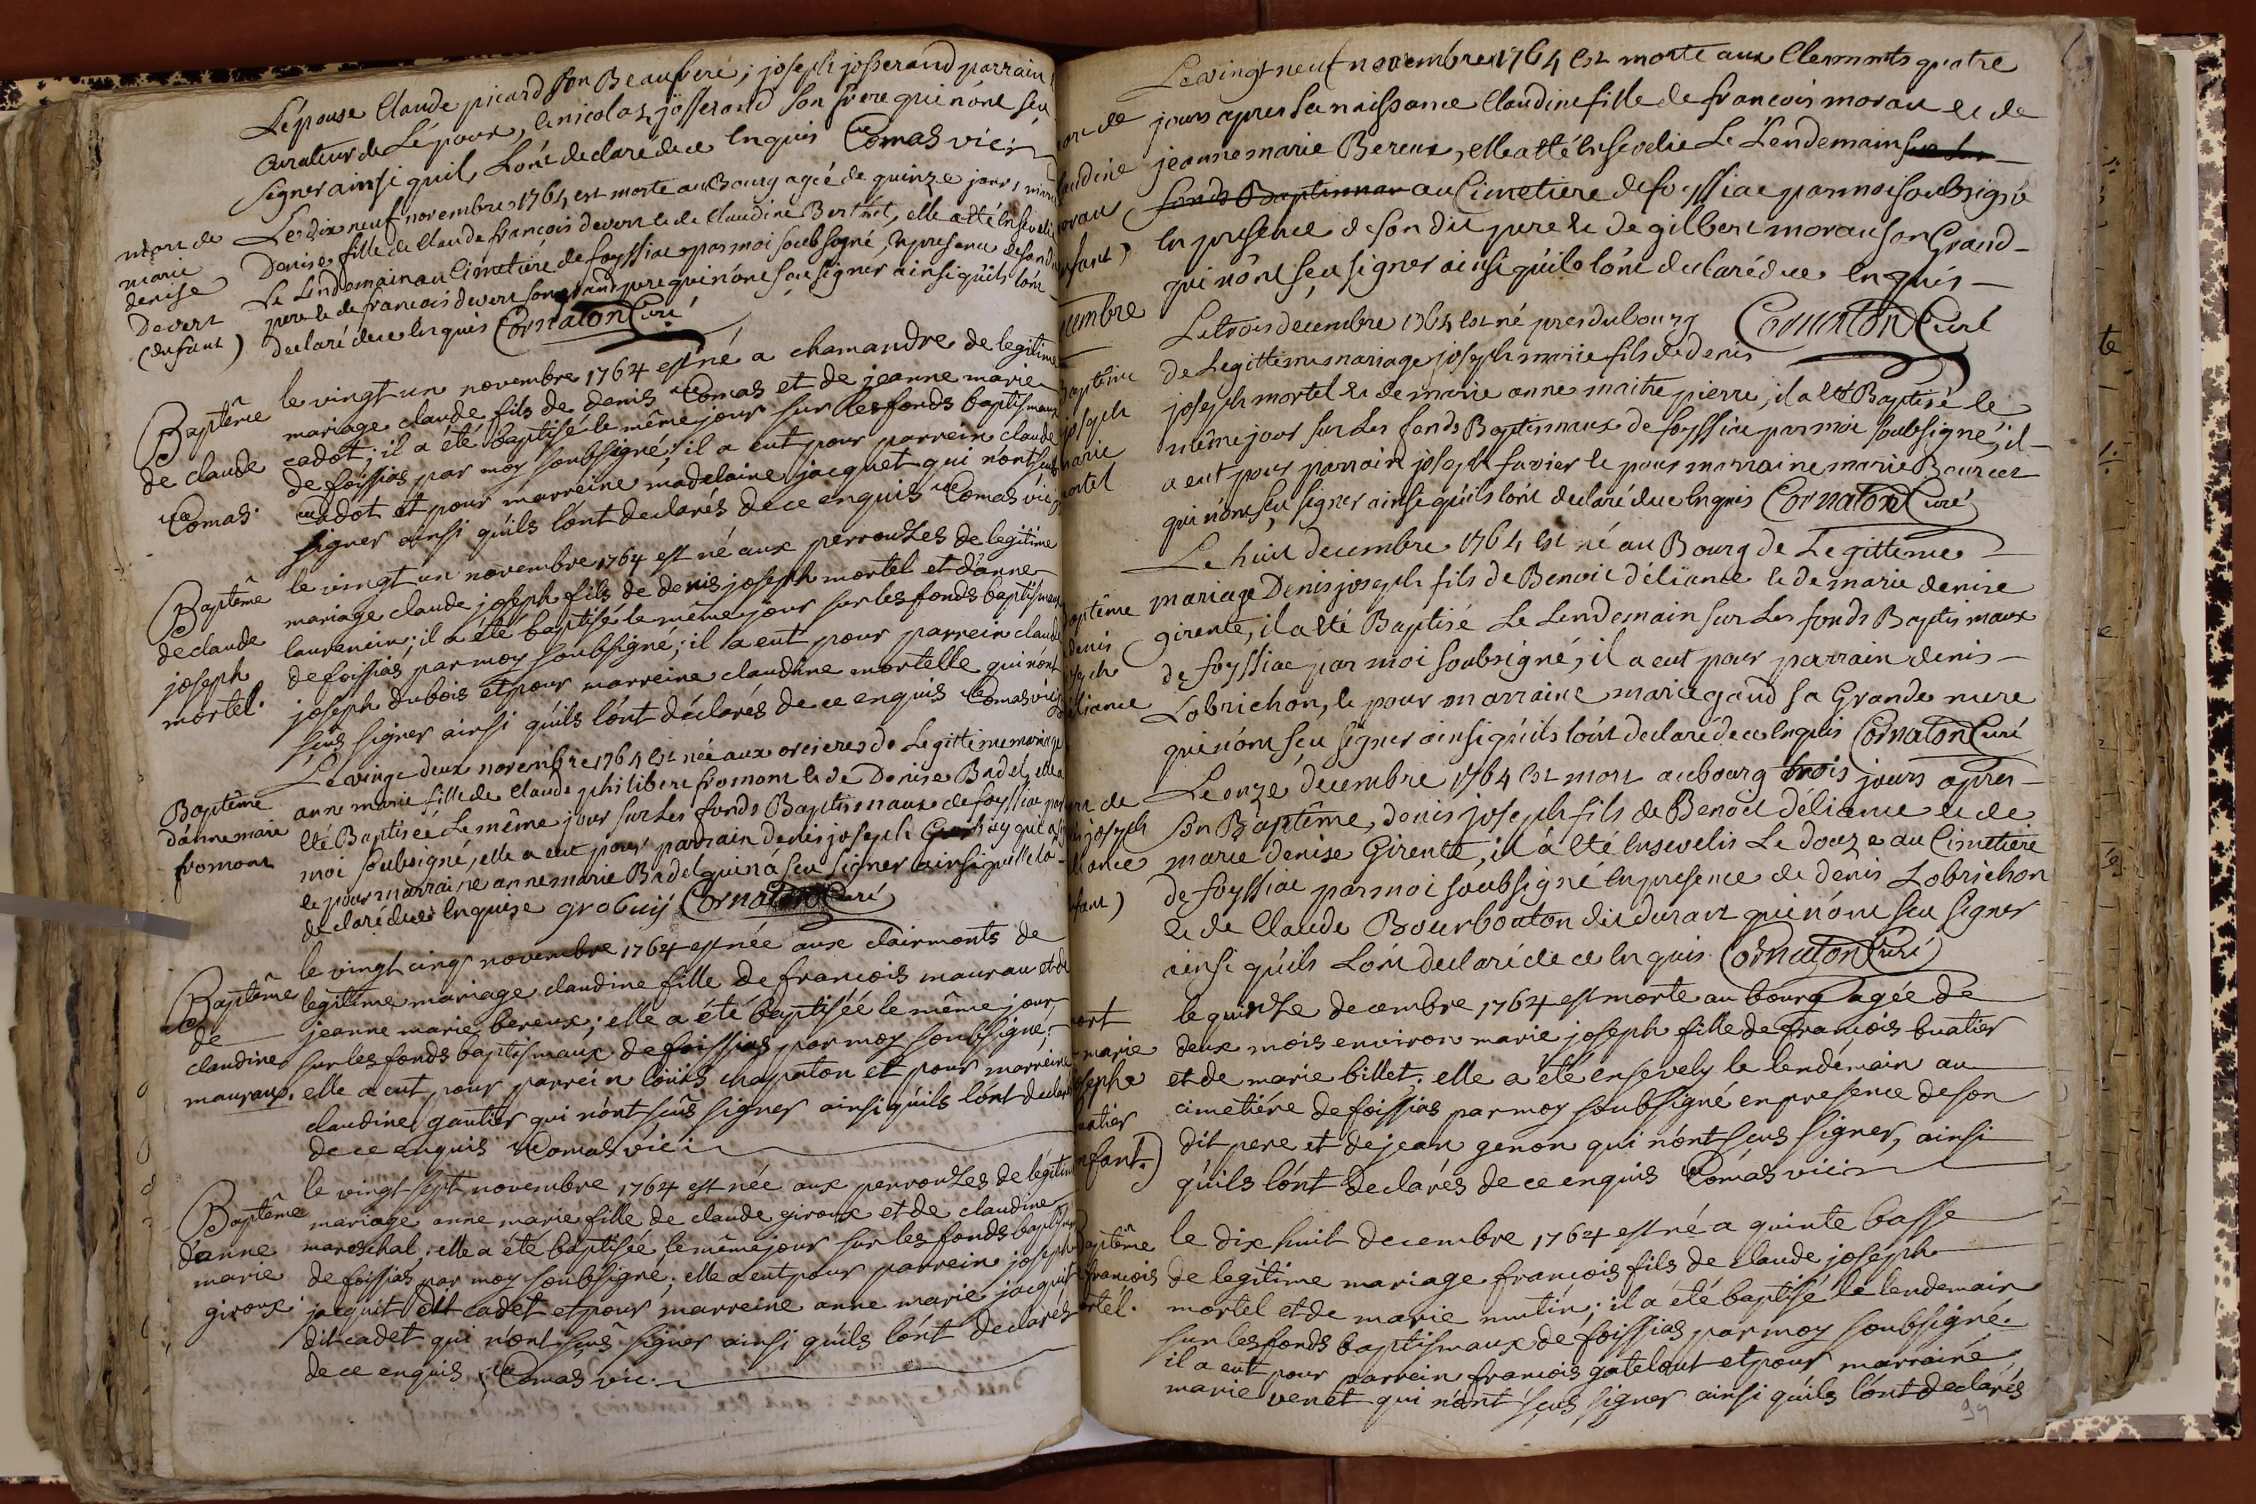 Lépouse Claude picard son Beaufrere ; joseph josserand parrain
Curateur de Lépoux, & nicolas josserand son frere qui n'ont sçu
signer ainsi quils L'ont declaré de ce Enquis Comas vic:
mort de
marie
denise
Devert
(enfant)
Le dix neuf novembre 1764 est morte au Bourg agée de quinze jours marie
Denise fille de Claude francois devert & de Claudine Berthet, elle a été Ensevelie
Le Lendemain au Cimetiére de foyssiac par moi soubsigné, En presence de son dit
pere & de francois devert son grand pere qui n'ont sçu signer ainsi qu'ils l'ont
declaré de ce Enquis Cornaton Curé
Baptême
de claude
Comas.
le vingt un novembre 1764 est né a chamandre de legitime
mariage claude fils de denis Comas et de jeanne marie
cadot ; il a été baptisé le même jour sur les fonds baptismaux
de foissias par moy soubsigné ; il a eut pour parrein claude
cadot et pour marreine madelaine jacquet qui n'ont sçus
signer ainsi quils l'ont declarés de ce enquis Comas vic:
Baptême
de claude
joseph
mortel.
le vingt un novembre 1764 est né aux perrouzes de legitime
mariage claude joseph fils de denis joseph mortel et d'anne
laurencin ; il a été baptisé le même jour sur les fonds baptismaux
de foissias par moy soubsigné ; il a eut pour parrein claude
joseph dubois et pour marreine claudine mortelle qui n'ont
sçus signer ainsi qu'ils l'ont déclarés de ce enquis Comas vic:
Baptême
d'anne marie
fromont
Le vingt deux novembre 1764 est née aux orcieres de Legittime mariage
anne marie fille de Claude philibert fromont & de Denise Badel, elle a
été Baptisée Le même jour sur Les fonds Baptismaux de foyssiac par
moi soubsigné, elle a eut pour parrain denis joseph Grabuy qui a s
& pour marraine anne marie Badel qui n'a sçu signer ainsi quelle la
declaré de ce Enquise grabuy Cornaton Curé
Baptême
de
claudine
mauraux.
le vingt cinq novembre 1764 est née aux clairmonts de
legitime mariage claudine fille de francois maurau et de
jeanne marie bereux ; elle a été baptisée le même jour,
sur les fonds baptismaux de foissias par moy soubsigné ;
elle a eut pour parrein loüis chapaton et pour marreine
claudine gautier qui n'ont sçus signer ainsi qu'ils l'ont declaré
de ce enquis Comas vic:
Baptême
d'anne
marie
giroux.
le vingt sept novembre 1764 est née aux perrouzes de legitime
mariage anne marie fille de claude giroux et de claudine
mareschal ; elle a été baptisée le même jour sur les fonds baptismaux
de foissias par moy soubsigné ; elle a eut pour parrein joseph
jacquit dit cadet et pour marreine anne marie jacquit
dit cadet qui n'ont sçus signer ainsi qu'ils l'ont declarés
de ce enquis ; Comas vic.
ort de
laudine
orau
nfant)
Le vingt neuf novembre 1764 est morte aux Clermonts quatre
jours apres sa naissance Claudine fille de francois morau & de
jeanne marie Bereux, elle a été Ensevelie Le Lendemain sur Les
fonds Baptismau au Cimetiere de foyssiac par moi soubsigné
En presence de son dit pere & de gilbert morau son Grand
qui n'ont sçu signer ainsi qu'ils l'ont declaré de ce Enquis
Cornaton Curé
cembre
Baptême
joseph
marie
ortel
Le trois decembre 1764 est né pres du bourg
de Legittime mariage joseph marie fils de denis
joseph mortel & de marie anne maitre pierre, il a été Baptisé le
même jour sur Les fonds Baptismaux de foyssiac par moi soubsigné, il
a eut pour parrain joseph favier & pour marraine marie Bourcet
qui n'ont sçu signer ainsi qu'ils l'ont declaré de ce Enquis Cornaton Curé
aptême
denis
seph
éliance
Le huit decembre 1764 est né au Bourg de Legittime
mariage Denis joseph fils de Benoit déliance & de marie denise
girente, il a été Baptisé Le Lendemain sur Les fonds Baptismaux
de foyssiac par moi soubsigné, il a eut pour parrain denis
Lobrichon, & pour marraine marie gaud sa Grande mere
qui n'ont sçu signer ainsi qu'ils l'ont declaré de ce Enquis Cornaton Curé
rt de
is joseph
liance
fant)
Le onze decembre 1764 est mort au bourg trois jours apres
son Baptême, denis joseph fils de Benoit déliance & de
marie denise Girente, il à été Ensevelis Le douze au Cimetiére
de foyssiac par moi soubsigné En presence de denis Lobrichon
& de Claude Bourbouton dit durant qui n'ont sçu signer
ainsi qu'ils L'ont declaré de ce Enquis Cornaton Curé
ort
marie
osephe
uatier
nfant.)
le quinze decembre 1764 est morte au bourg agée de
deux mois environ marie joseph fille de françois buatier
et de marie billet ; elle a été ensevely le lendemain au
cimetiére de foissias par moy soubsigné en presence de son
dit pere et de jean genon qui n'ont sçus signer, ainsi
qu'ils l'ont declarés de ce enquis Comas vic:
Baptême
francois
ortel.
le dix huit decembre 1764 est né a quinte basse
de legitime mariage francois fils de claude joseph
mortel et de marie mutin ; il a été baptisé le lendemain
sur les fonds baptismaux de foissias par moy soubsigné.
il a eut pour parrein francois gatelout et pour marraine
marie venet qui n'ont sçus signer ainsi qu'ils l'ont declarés